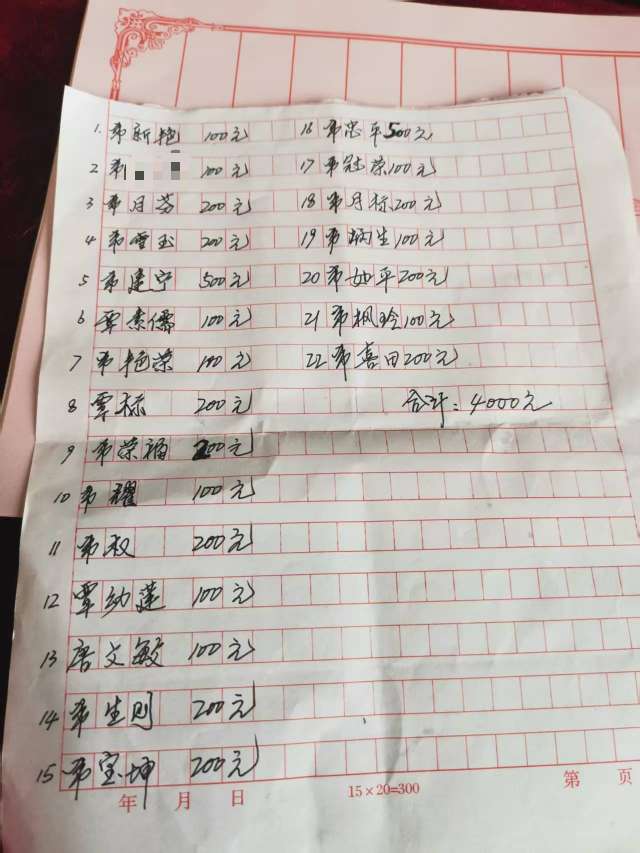 1. 韦新艳 100元
2 韦 100元
3 韦月芬 200元
4 韦雪玉 200元
5 韦建宁 500元
6 覃杰儒 100元
7 韦艳荣 100元
8 覃标 200元
9 韦荣福 200元
10 韦耀 100元
11 韦权 200元
12 覃幼莲 100元
13 唐文敏 100元
14 韦生则 200元
15 韦宝坤 200元
16 韦忠平 500元
17 韦冠荣 100元
18 韦月标 200元
19 韦炳生 100元
20 韦如平 200元
21 韦枫玲 100元
22 韦喜田 200元
合计：4000元
年 月 日
15×20=300
第 页